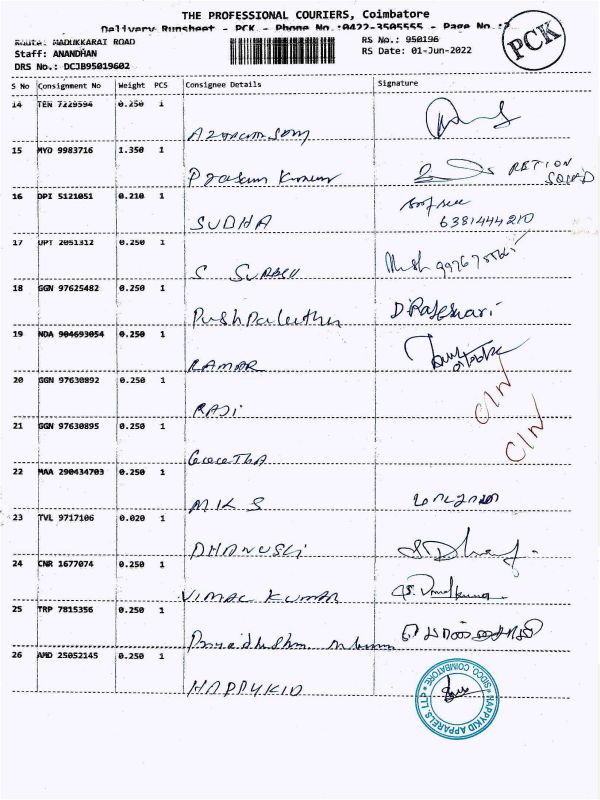 THE PROFESSIONAL COURIERS, Coimbatore
Delivery Runsheet - PCK - Phone No.:0422-3505555 - Page No.:2
PCK
Route: MADUKKARAI ROAD
RS No.: 950196
Staff: ANANDHAN
RS Date: 01-Jun-2022
DRS No.: DCJB95019602
S No Consignment No Weight PCS Consignee Details Signature
14 TEN 7229594 0.250 1
15 MYD 9983716 1.350 1
Prasanna Kumar
16 DPI 5121051 0.210 1
SUDHA
6381444210
17 UPT 2051312 0.250 1
S SURESH
18 GGN 97625482 0.250 1 D Rajeswari
19 NDA 904693054 0.250 1
RAMAR
20 GGN 97630892 0.250 1 C/N
RAJI
21 GGN 97630895 0.250 1 C/N
GEETHA
22 MAA 290434703 0.250 1
M K S
23 TVL 9717106 0.020 1
DHANUSH
24 CNR 1677074 0.250 1
VIMAL KUMAR
25 TRP 7815356 0.250 1
26 AMD 25052145 0.250 1
HAPPYKID
HAPPYKID APPARELS LLP SIDCO, COIMBATORE